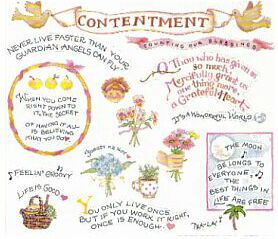 CONTENTMENT
COUNTING OUR BLESSINGS
NEVER LIVE FASTER THAN YOUR
GUARDIAN ANGELS CAN FLY.
O Thou who has given us
so much,
Mercifully grant us
one thing more -
a Grateful Heart.
WHEN YOU COME
RIGHT DOWN TO
IT, THE SECRET
OF HAVING IT ALL
IS BELIEVING
THAT YOU DO
IT'S A WONDERFUL WORLD
FEELIN' GROOVY
THE MOON
BELONGS TO
EVERYONE,
THE
BEST THINGS IN
LIFE ARE FREE
LIFE IS GOOD
YOU ONLY LIVE ONCE
BUT IF YOU WORK IT RIGHT,
ONCE IS ENOUGH.
TRA-LA!